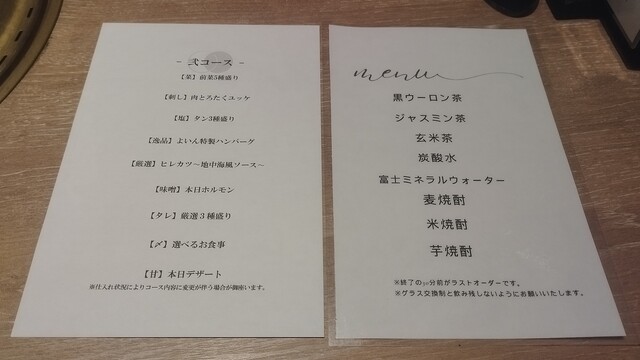 - 弐コース -
【菜】前菜5種盛り
【刺し】肉とろたくユッケ
【塩】タン3種盛り
【逸品】よいん特製ハンバーグ
【厳選】ヒレカツ〜地中海風ソース〜
【味噌】本日ホルモン
【タレ】厳選３種盛り
【〆】選べるお食事
【甘】本日デザート
※仕入れ状況によりコース内容に変更が伴う場合が御座います。
menu
黒ウーロン茶
ジャスミン茶
玄米茶
炭酸水
富士ミネラルウォーター
麦焼酎
米焼酎
芋焼酎
※終了の30分前がラストオーダーです。
※グラス交換制と飲み残しないようにお願いいたします。